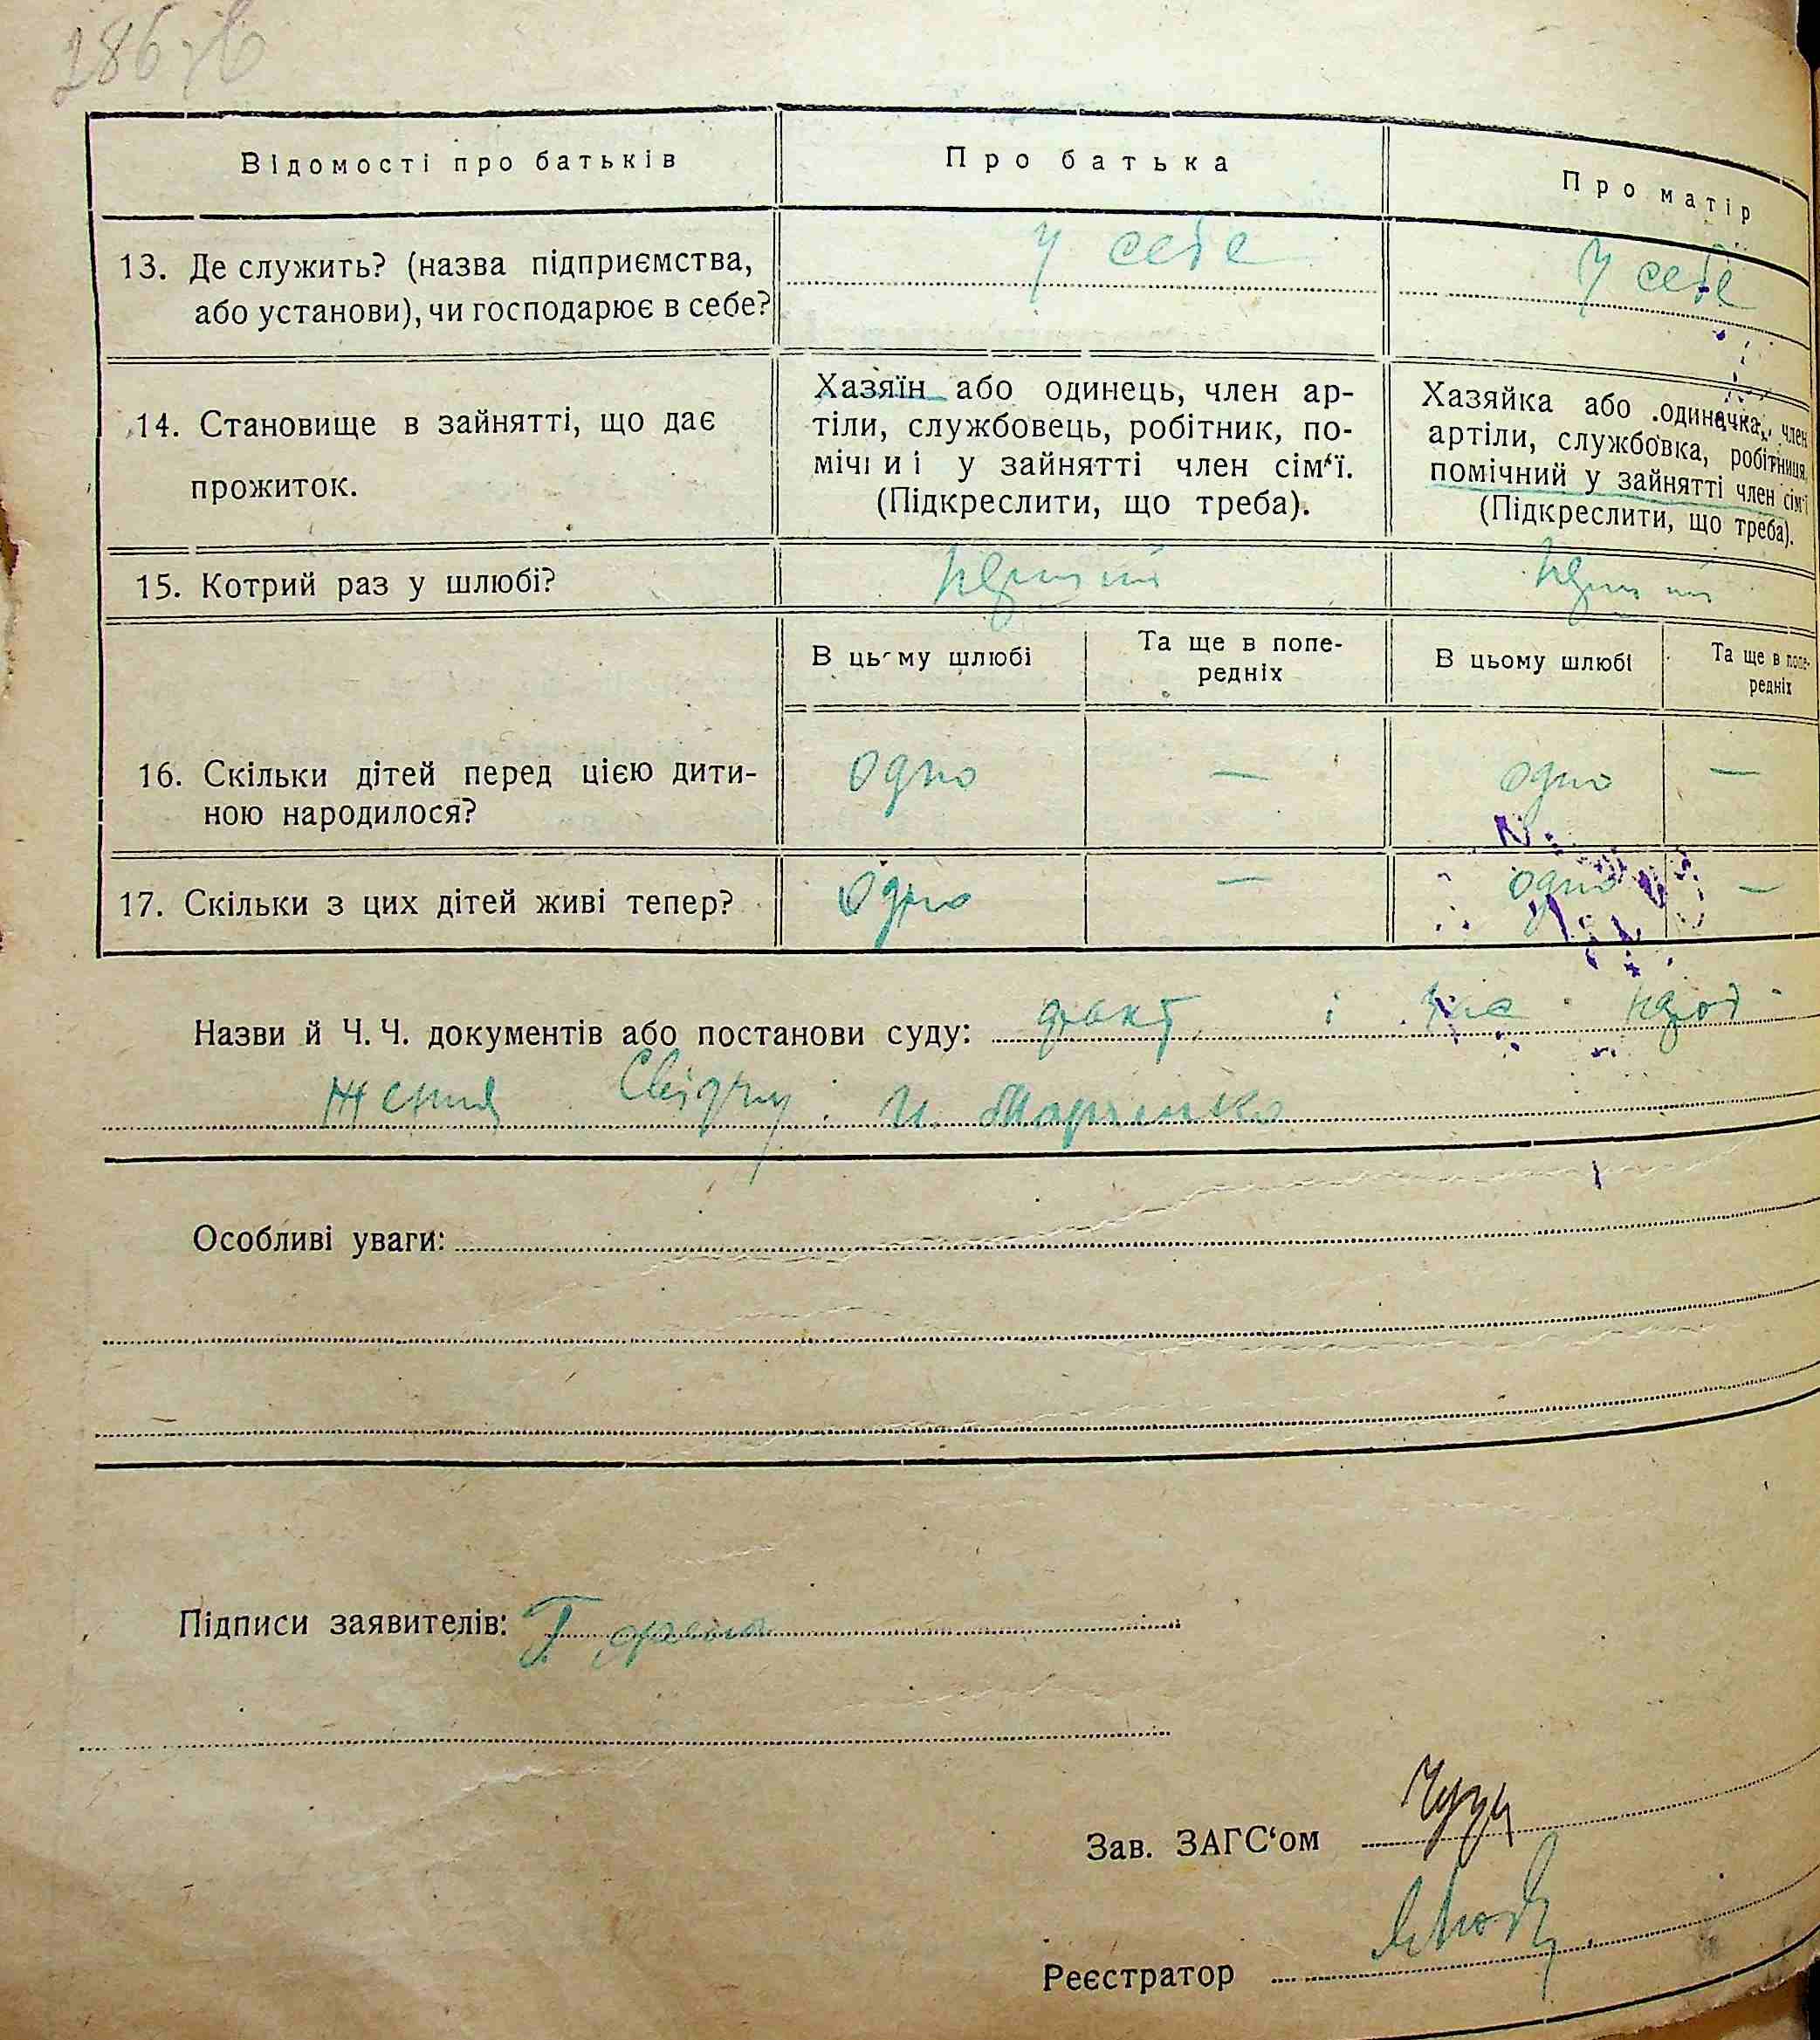 Відомості про батьків
Про батька
Про матір
13. Де служить? (назва підприємства,
або установи), чи господарює в себе?
у себе
у себе
14. Становище в зайнятті, що дає
прожиток.
Хазяїн або одинець, член ар-
тіли, службовець, робітник, по-
мічний у зайнятті член сім'ї.
(Підкреслити, що треба).
Хазяйка або одиначка, член
артіли, службовка, робітниця,
помічний у зайнятті член сім'ї
(Підкреслити, що треба).
15. Котрий раз у шлюбі?
перший
перший
В цьому шлюбі
Та ще в попе-
редніх
В цьому шлюбі
Та ще в попе-
редніх
16. Скільки дітей перед цією дити-
ною народилося?
одно
—
одно
—
17. Скільки з цих дітей живі тепер?
одно
—
одно
—
Назви й Ч. Ч. документів або постанови суду: факт і
жения
Особливі уваги:
Підписи заявителів:
Зав. ЗАГС'ом
Реєстратор